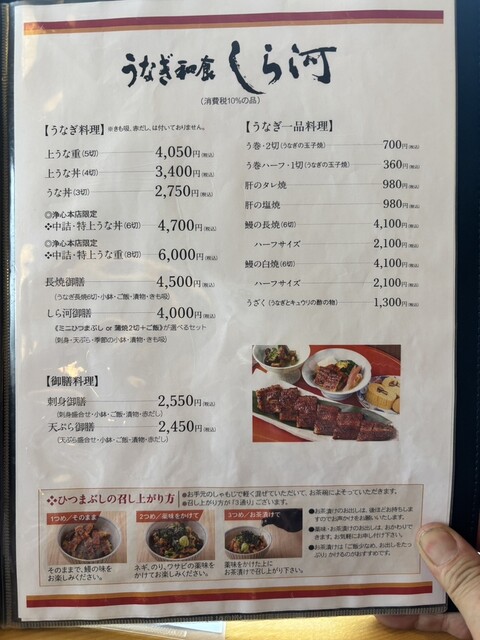 うなぎ和食 しら河
(消費税10%の品)
【うなぎ料理】 ※きも吸、赤だし、は付いておりません。
上うな重(5切) 4,050円(税込)
上うな丼(4切) 3,400円(税込)
うな丼(3切) 2,750円(税込)
◎浄心本店限定
❖中詰・特上うな丼(6切) 4,700円(税込)
◎浄心本店限定
❖中詰・特上うな重(8切) 6,000円(税込)
長焼御膳 4,500円(税込)
(うなぎ長焼6切・小鉢・ご飯・漬物・きも吸)
しら河御膳 4,000円(税込)
《ミニひつまぶし or 蒲焼2切+ご飯》が選べるセット
(刺身・天ぷら・季節の小鉢・漬物・きも吸)
【御膳料理】
刺身御膳 2,550円(税込)
(刺身盛合せ・小鉢・ご飯・漬物・赤だし)
天ぷら御膳 2,450円(税込)
(天ぷら盛合せ・小鉢・ご飯・漬物・赤だし)
【うなぎ一品料理】
う巻・2切(うなぎの玉子焼) 700円(税込)
う巻ハーフ・1切(うなぎの玉子焼) 360円(税込)
肝のタレ焼 980円(税込)
肝の塩焼 980円(税込)
鰻の長焼(6切) 4,100円(税込)
ハーフサイズ 2,100円(税込)
鰻の白焼(6切) 4,100円(税込)
ハーフサイズ 2,100円(税込)
うざく(うなぎとキュウリの酢の物) 1,300円(税込)
❖ひつまぶしの召し上がり方
●お手元のしゃもじで軽く混ぜていただいて、お茶碗によそっていただきます。
●召し上がり方が「3通り」ございます。
1つめ/そのまま
そのままで、鰻の味を
お楽しみください。
2つめ/薬味をかけて
ネギ、のり、ワサビの薬味を
かけてお楽しみください。
3つめ/お茶漬けで
薬味をかけた上に
お茶漬けで召し上がり下さい。
●お茶漬けのお出しは、後ほどお持ちしま
すのでお声かけをお願いいたします。
●薬味・お茶漬けのお出しは、おかわりで
きます。お気軽にお申し付け下さい。
●お茶漬けは「ご飯少なめ、お出しをたっ
ぷり」かけるのがおすすめです。